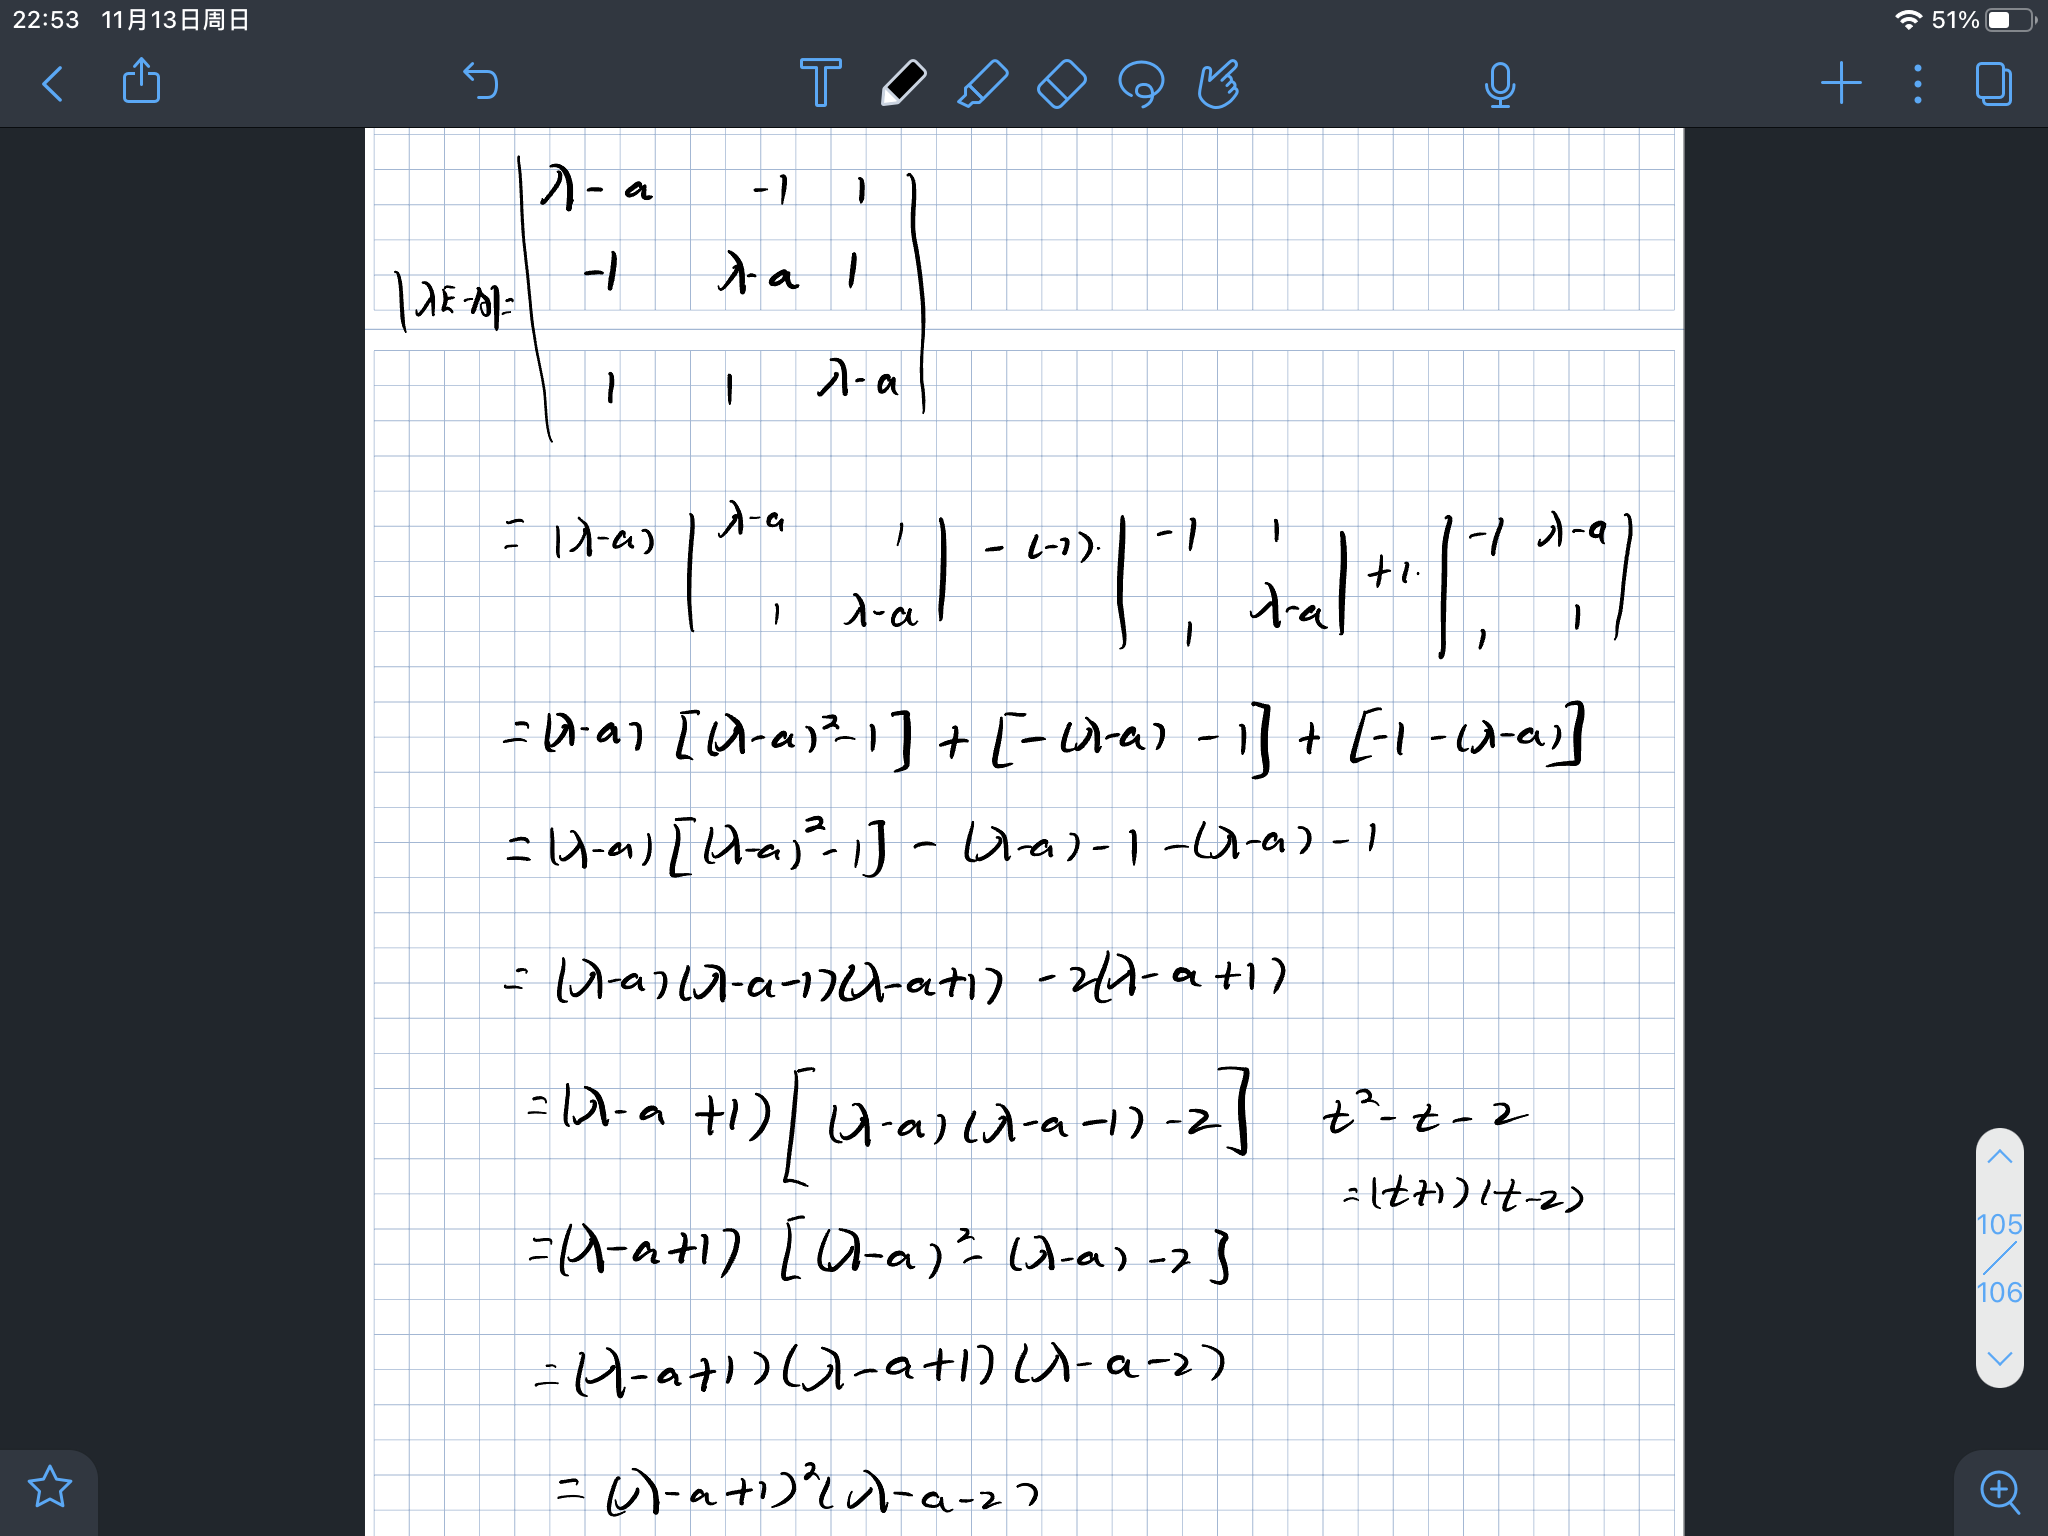 22:53 11月13日周日 51%
λ-a -1 1
-1 λ-a 1
|λE-A|=
1 1 λ-a
= (λ-a) | λ-a 1 | - (-1)· | -1 1 | +1· | -1 λ-a |
1 λ-a 1 λ-a 1 1
= (λ-a) [(λ-a)²-1] + [-(λ-a) -1] + [-1-(λ-a)]
= (λ-a) [(λ-a)²-1] - (λ-a)-1 -(λ-a)-1
= (λ-a)(λ-a-1)(λ-a+1) -2(λ-a+1)
= (λ-a+1) [(λ-a)(λ-a-1)-2] t²-t-2
=(t+1)(t-2)
=(λ-a+1) [(λ-a)²-(λ-a)-2]
=(λ-a+1)(λ-a+1)(λ-a-2)
= (λ-a+1)²(λ-a-2)
105
/
106